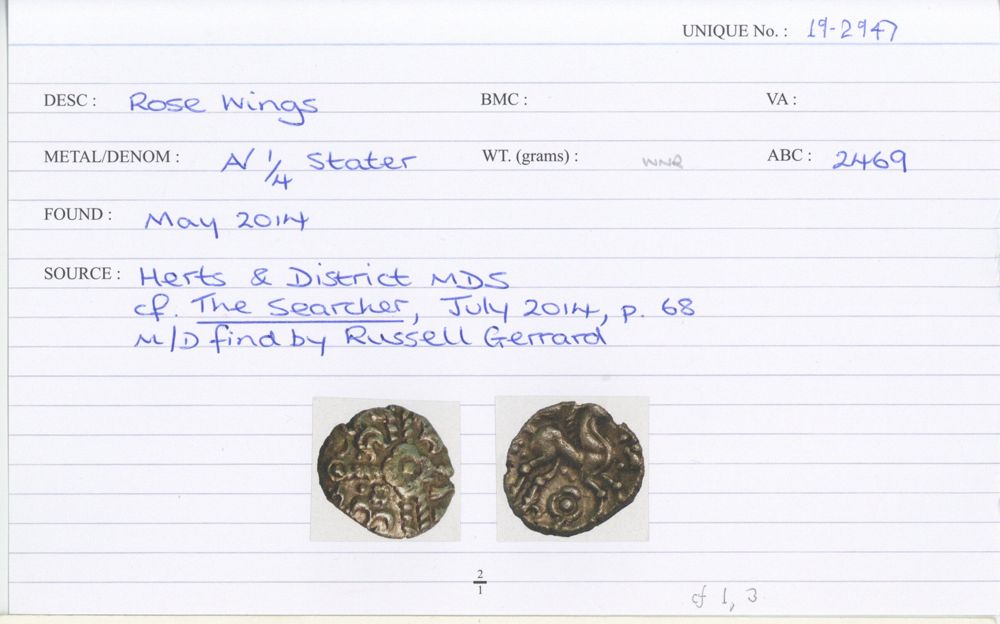 UNIQUE No. : 19-2947
DESC : Rose Wings BMC : VA :
METAL/DENOM : A/ 1/4 Stater WT. (grams) : WNR ABC : 2469
FOUND : May 2014
SOURCE : Herts & District MDS
cf. The Searcher, July 2014, p. 68
M/D find by Russell Gerrard
2/1
cf 1, 3